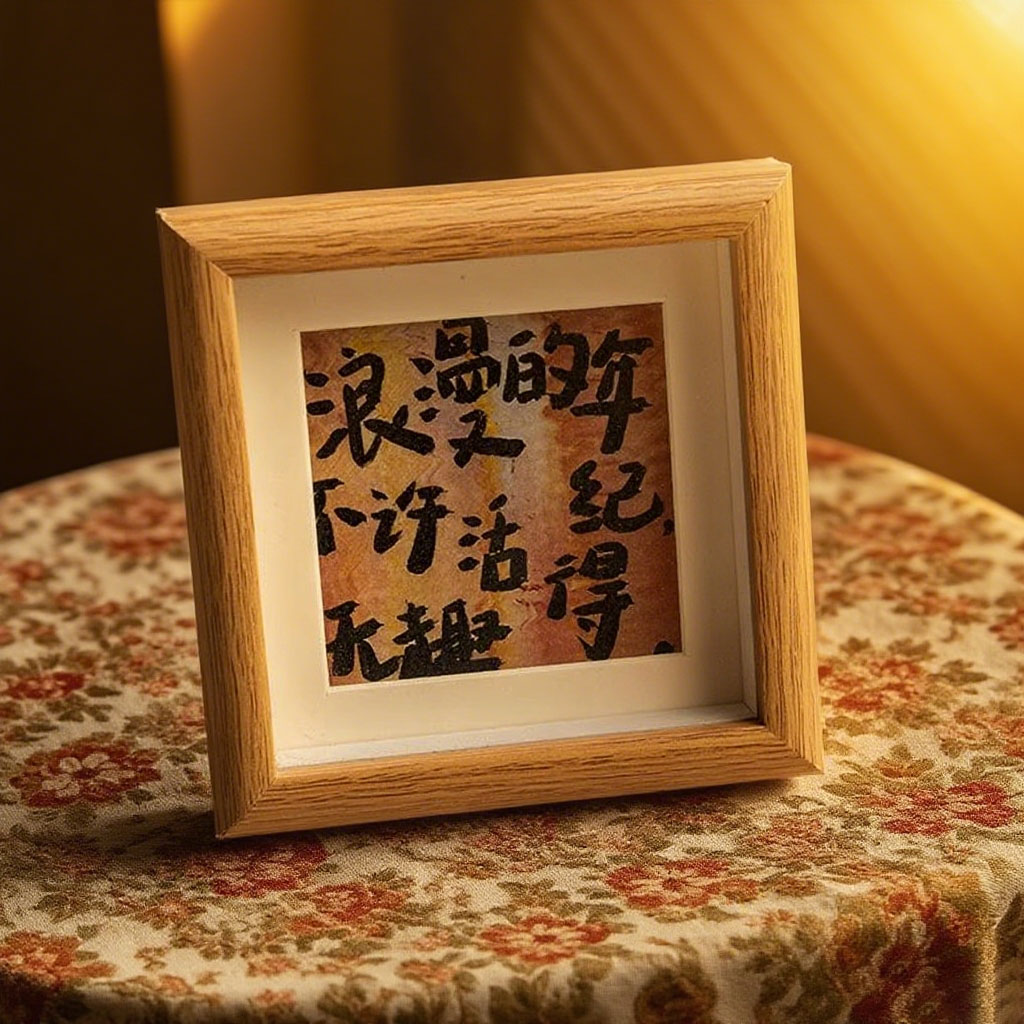 浪漫的年
纪,
不许活得
无趣.